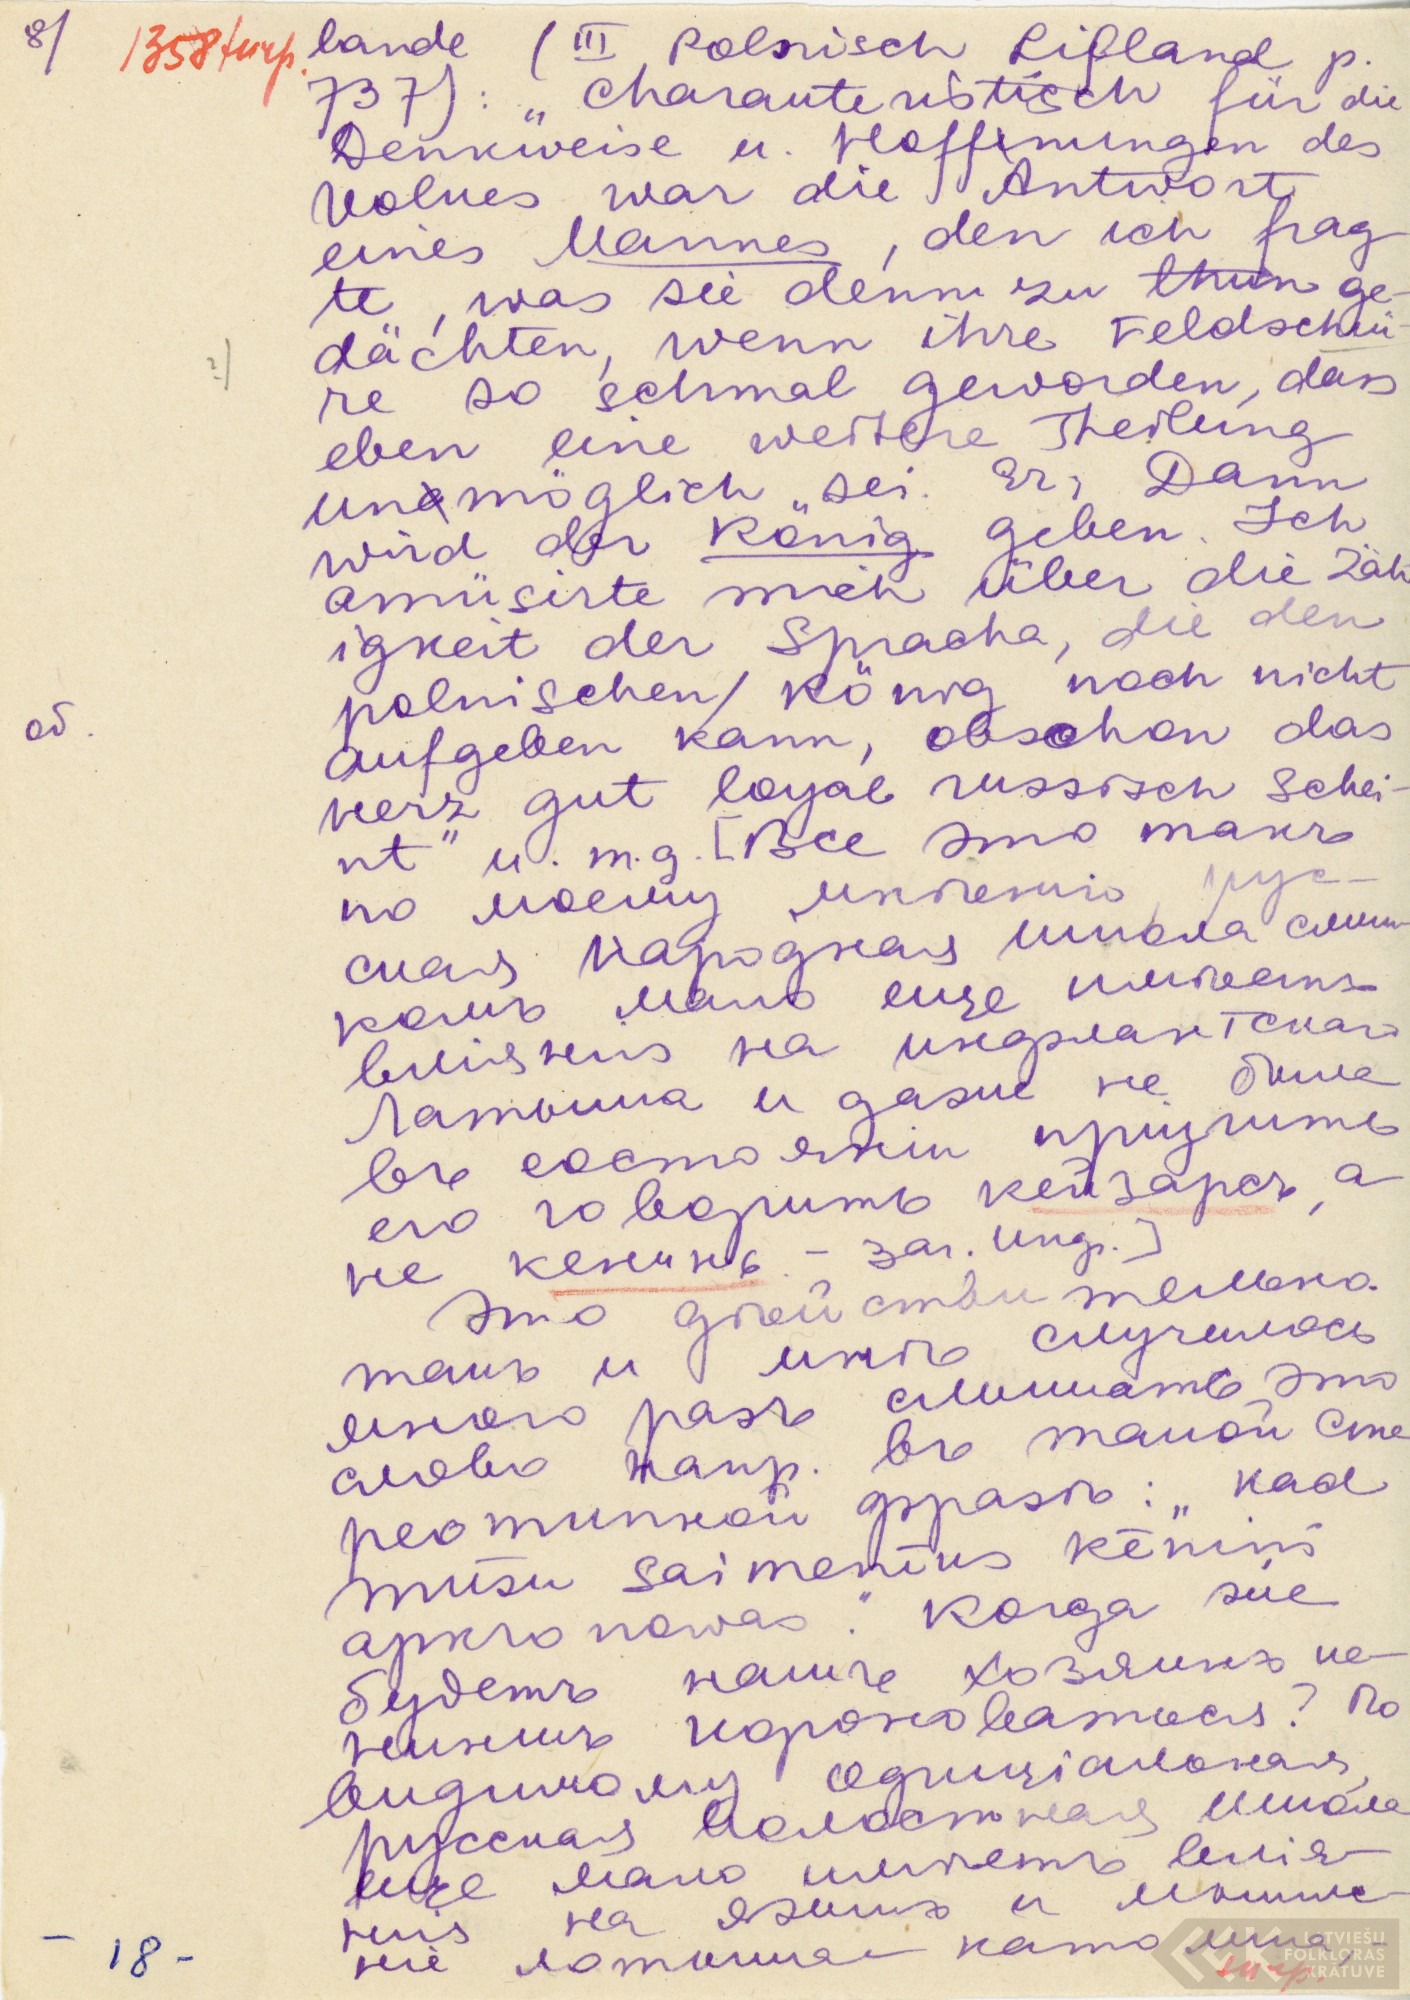 8/ 1358 lande (III Polnisch Lifland p.
737): „Charauteristisch für die
Denkweise u. Hoffnungen des
Volues war die Antwort
eines Mannes, den ich frag
te, was sie denn zu thun ge-
dächten, wenn ihre Feldschnü-
2)
re so schmal geworden, dass
eben eine weitere Theilung
unmöglich sei. Er, Dann
wird der König geben. Ich
amüsirte mich über die Zäh
igkeit der Spracha, die den
polnischen König noch nicht
об.
aufgeben kann, obschon das
Herz gut loyal russisch schei-
nt" и. т.д. [Все это такъ
по моему мнѣнию, рус-
ская народная школа слиш
комъ мало еще имѣетъ
вліяния на инфлантскаго
Латыша и даже не была
въ состояніи пріучить
его говорить кейзарсъ, а
не кениньь - заг. Инф.]
Это дѣйствительно
такъ и мнѣ случилось
много разъ слышать это
слово напр. въ такой сте
реотипной фразѣ: „Kad
mūsu saimenīus kēniņš
apkronowas". Когда же
будетъ нашъ хозяинъ ке-
нинь короноваться? По
видимому официіальная,
русская волостная школа
еще мало имѣетъ влія-
нія на языкъ и мышле-
ніе латыша католика,-
- 18 -
LATVIEŠU
FOLKLORAS
KRĀTUVE